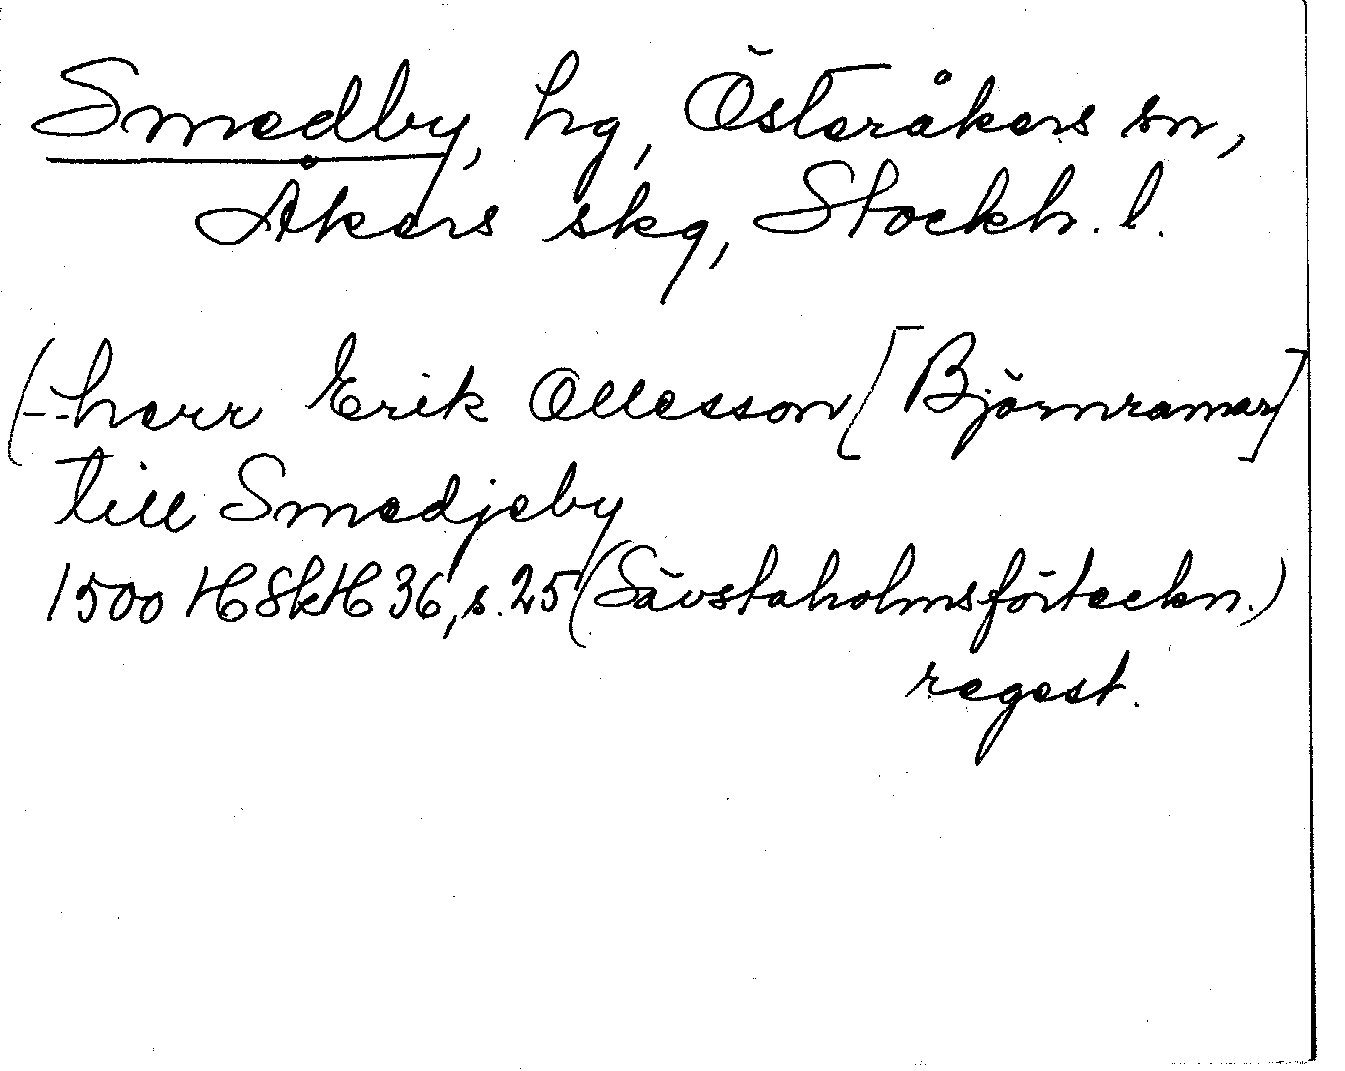 Smedby, hg, Österåkers sn,
Åkers skg, Stockh. l.
(--herr Erik Ollesson [Björnramar]
till Smedjeby
1500 HSkH 36, s. 25 (Sävstaholmsförteckn.)
regest.